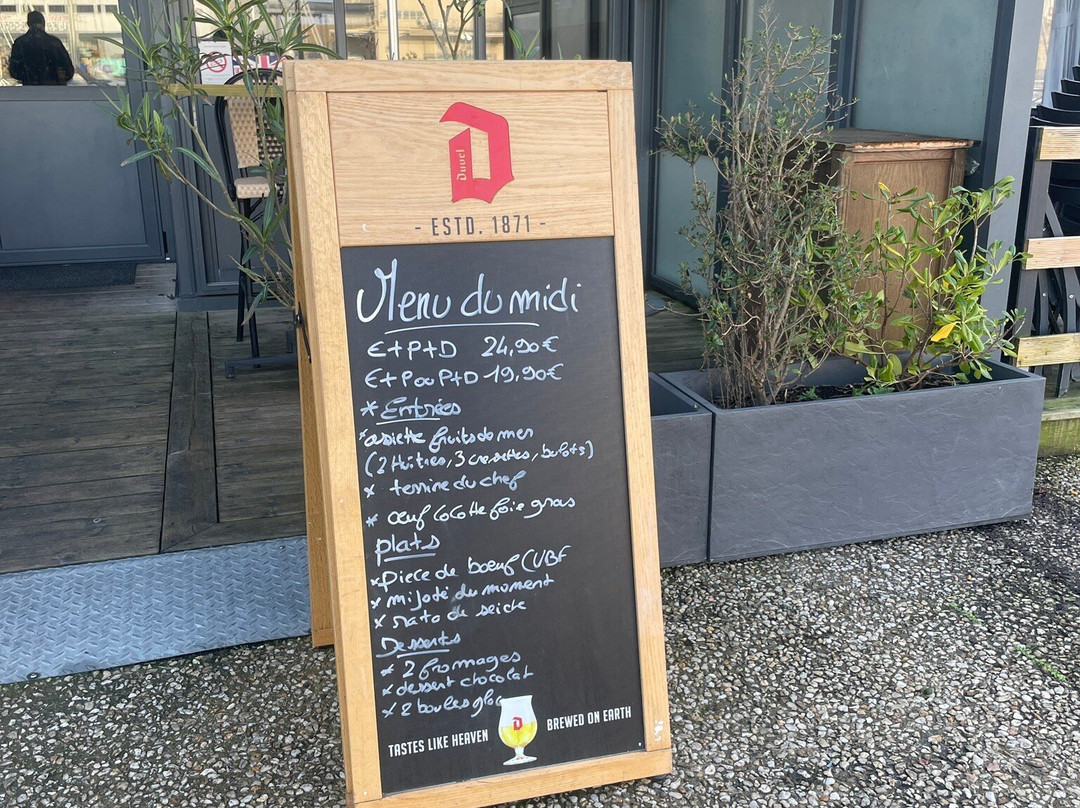 Duvel
- ESTD. 1871 -
Menu du midi
E+P+D 24,90€
E+P ou P+D 19,90€
* Entrées
* assiette fruits de mer
(2 Huitres, 3 crevettes, bulots)
* terrine du chef
* œuf cocotte foie gras
plats
* piece de bœuf (VBF
* mijoté du moment
* de seiche
Desserts
* 2 fromages
* dessert chocolat
* 2 boules
TASTES LIKE HEAVEN BREWED ON EARTH